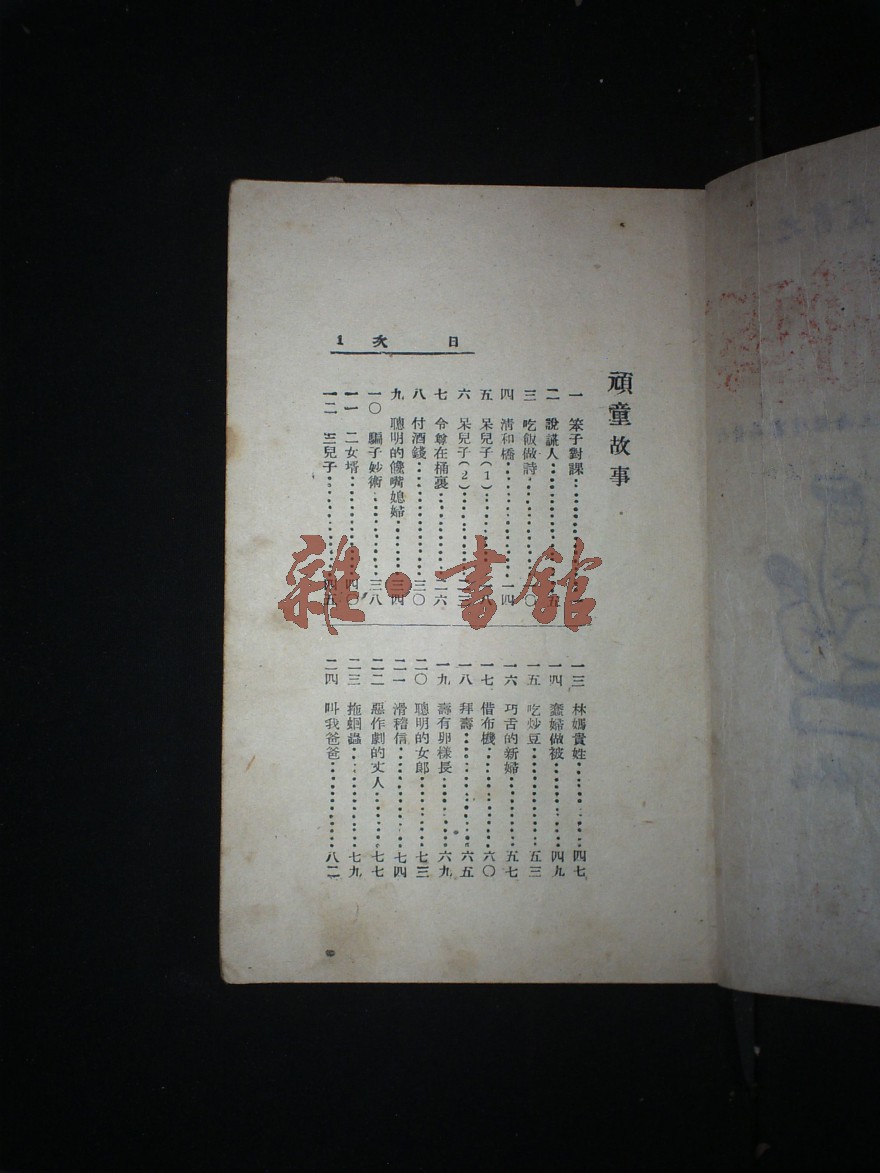 目次 1
頑童故事
一 笨子對課
二 說謊人 五
三 吃飯做詩 一〇
四 清和橋 一四
五 呆兒子(1)
六 呆兒子(2) 二三
七 令尊在桶裏 二六
八 付酒錢 三〇
九 聰明的饞嘴媳婦 三四
一〇 騙子妙術 三八
一一 二女壻 四〇
一二 三兒子 四五
一三 林媽貴姓 四七
一四 蠢婦做被 四九
一五 吃炒豆 五三
一六 巧舌的新婦 五七
一七 借布機 六〇
一八 拜壽 六五
一九 壽有卵樣長 六九
二〇 聰明的女郎 七三
二一 滑稽信 七四
二二 惡作劇的丈人 七七
二三 拖蛔蟲 七九
二四 叫我爸爸 八二
雜·書館